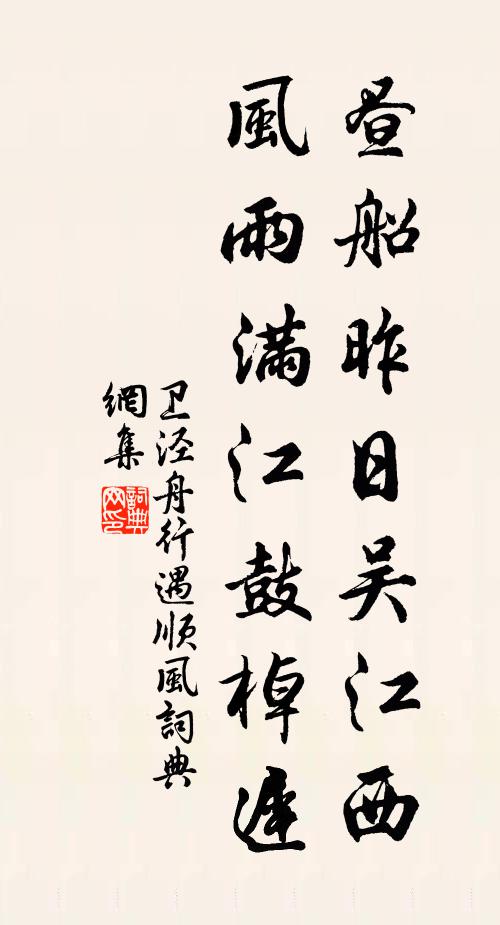 昼船昨日吴江西
風雨滿江鼓棹遲
卫泾舟行遇顺風詞典
網集
詞典
网印